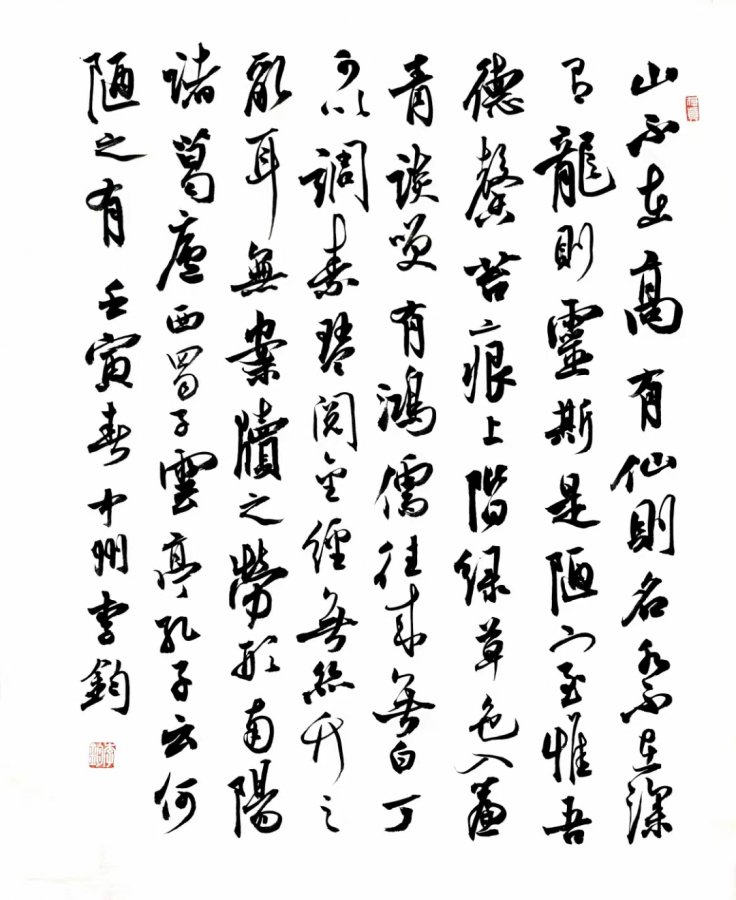 山不在高有仙則名水不在深
有龍則靈斯是陋室惟吾
德馨苔痕上階緑草色入簾
青談笑有鴻儒往來無白丁
可以調素琴閱金經無絲竹之
亂耳無案牘之勞形南陽
諸葛廬西蜀子雲亭孔子云何
陋之有壬寅春中州李鈞